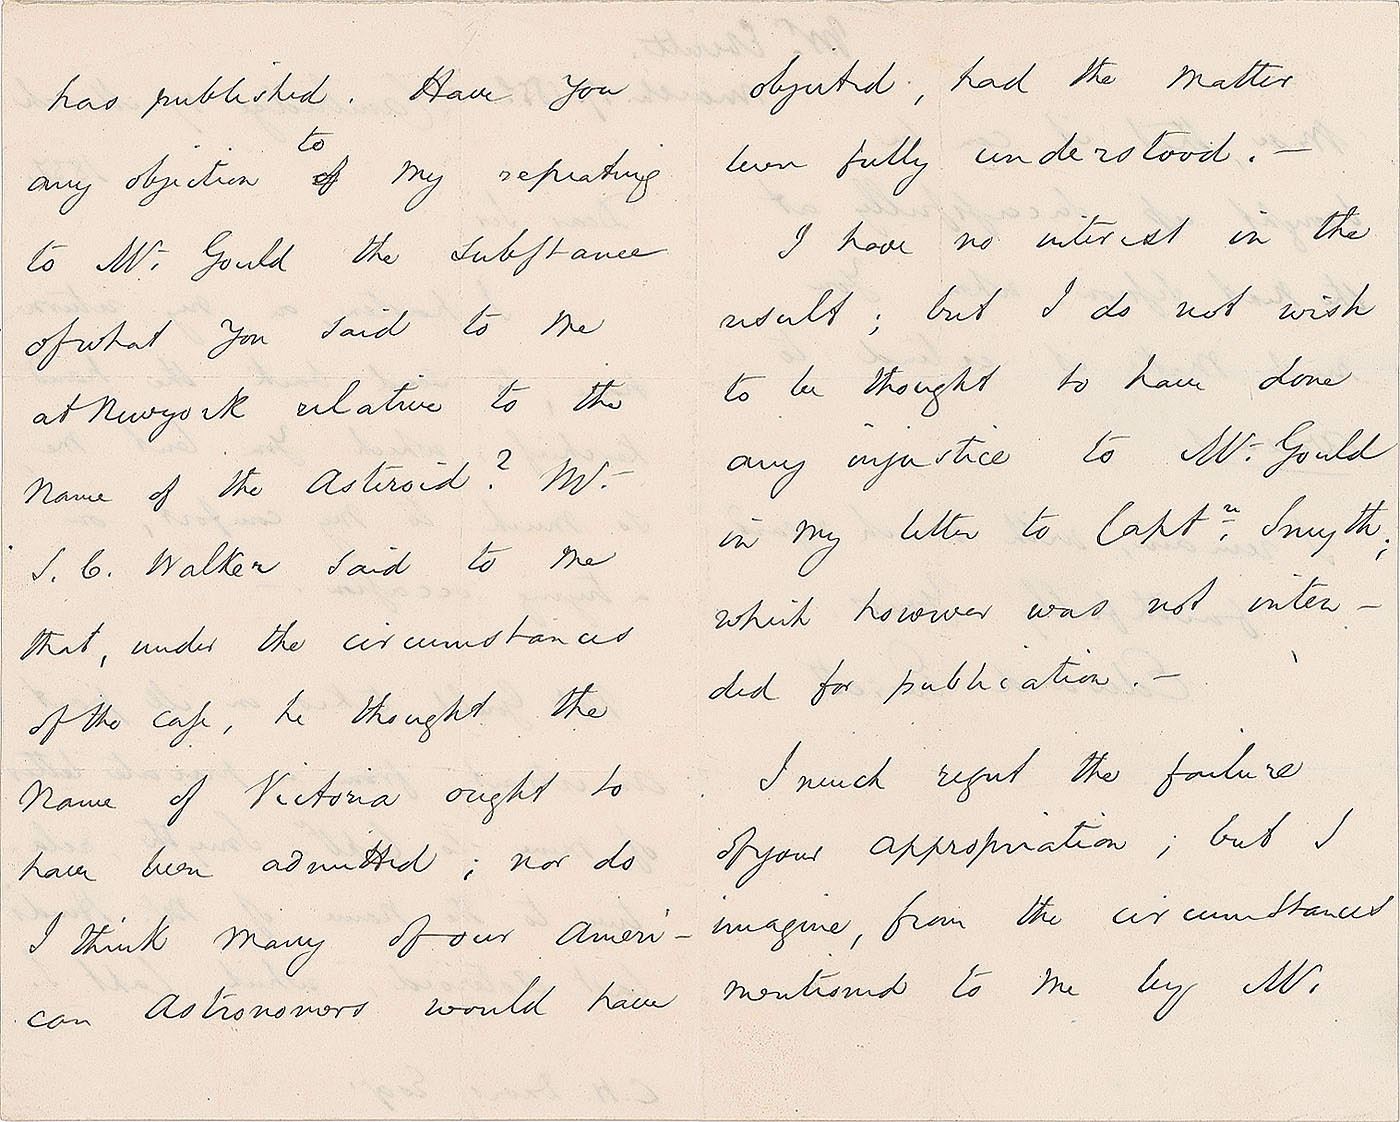 has published. Have you
to
any objection of my repeating
to Mr. Gould the substance
of what you said to me
at New york relative to the
name of the Asteroid? Mr.
S. C. Walker said to me
that, under the circumstances
of the case, he thought the
name of Victoria ought to
have been admitted; nor do
I think many of our Ameri-
can Astronomers would have
objected, had the matter
been fully understood. —
I have no interest in the
result; but I do not wish
to be thought to have done
any injustice to Mr. Gould
in my letter to Captn. Smyth;
which however was not inten-
ded for publication. —
I much regret the failure
of your appropriation; but I
imagine, from the circumstances
mentioned to me by Mr.